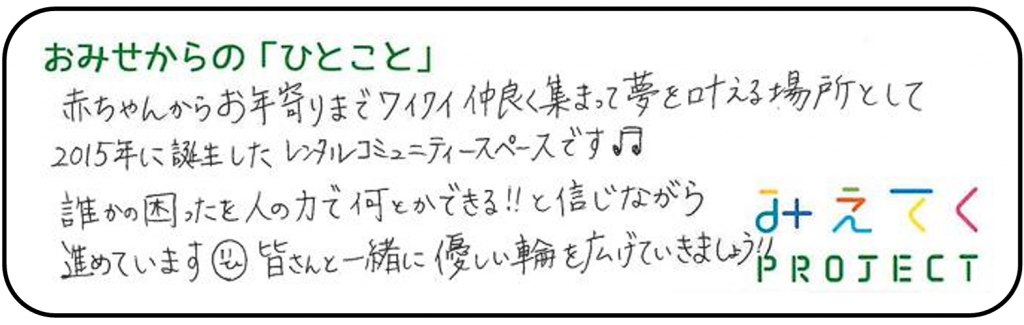 おみせからの「ひとこと」
赤ちゃんからお年寄りまでワイワイ仲良く集まって夢を叶える場所として
2015年に誕生したレンタルコミュニティースペースです♫
誰かの困ったを人の力で何とかできる!!と信じながら
進めています 皆さんと一緒に優しい輪を広げていきましょう!!
みえてく
PROJECT